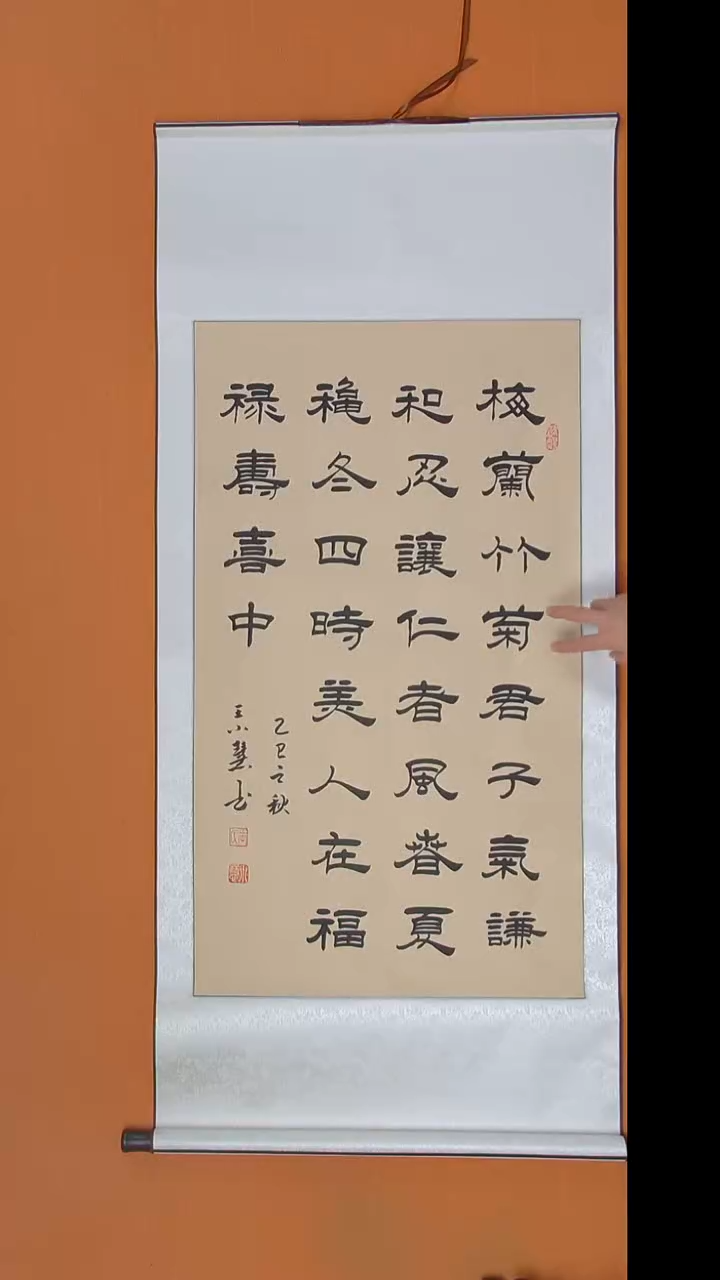 梅蘭竹菊君子氣謙
和忍讓仁者風春夏
龝冬四時美人在福
禄壽喜中
乙巳之秋
王小慧书